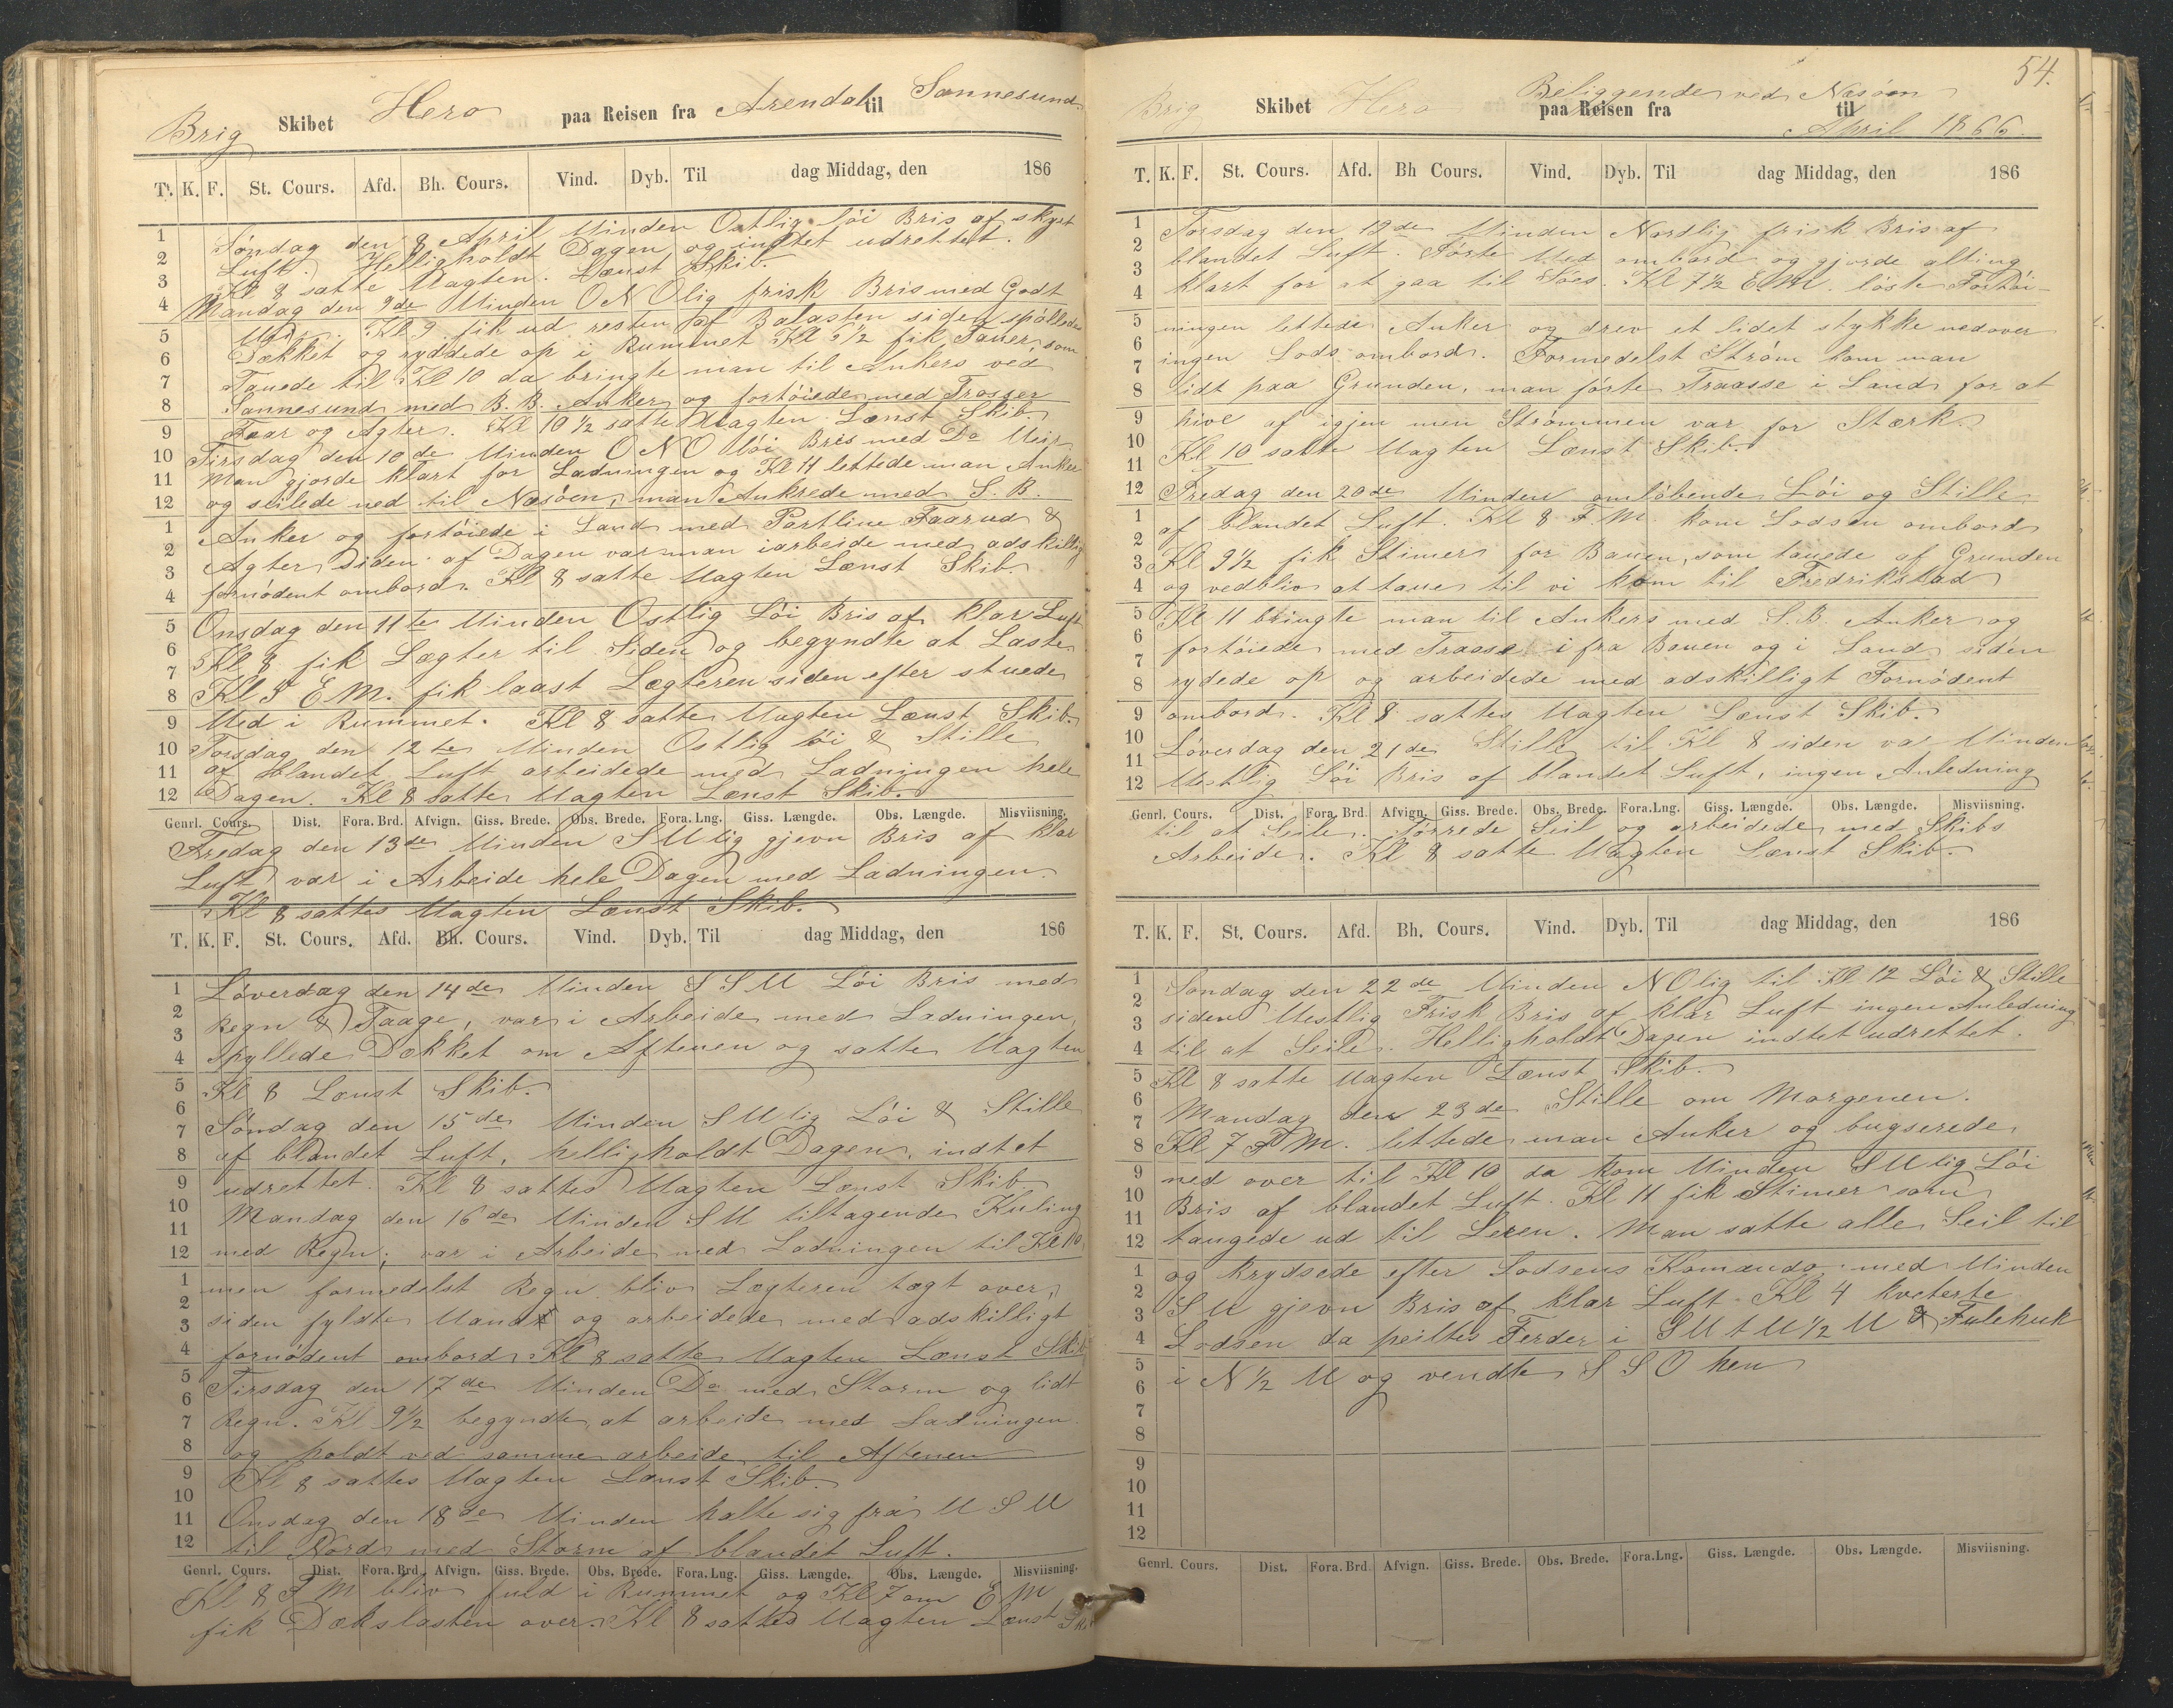 Brig Skibet Hero paa Reisen fra Arendal til Sannesund
T. K. F. St. Cours. Afd. Bh. Cours. Vind. Dyb. Til dag Middag, den 186
1 Søndag den 8 April Vinden Ostlig löi Bris af skyet
2 Luft. Helligholdt Dagen og indtet udrettet.
3 Kl 8 satte Vagten. Lænst Skib.
4 Mandag den 9de Vinden O N Olig frisk Bris med Godt
5 Kl 9 fik ud resten af Balasten siden spöllede
6 Dækket og ryddede op i Rummet Kl 6½ fik Tauer som
7 Tauede til Kl 10 da bringte man til Ankers ved
8 Sannesund med B.B. Anker og fortöiede med Trosser
9 Faar og Agter. Kl 10½ satte Vagten Lænst Skib.
10 Tirsdag den 10de Vinden O N O löi Bris med Do Veir
11 Man gjorde klart for Ladningen og Kl 11 lettede man Anker
12 og seilede ned til Næsöen, man Ankrede med S.B.
1 Anker og fortöiede i Land med Partline Faarud &
2 Agter siden af Dagen var man iarbeide med adskillig
3 fornödent ombord. Kl 8 satte Vagten Lænst Skib.
4
5 Onsdag den 11te Vinden Ostlig Löi Bris af klar Luft
6 Kl 8 fik Lægter til Siden og begyndte at Laste
7 Kl 5 E M. fik laast Lægteren siden efter stuede
8 Ved i Rummet. Kl 8 satte Vagten Lænst Skib.
9 Torsdag den 12te Vinden Ostlig löi & Stille
10 af blandet Luft arbeidede med Ladningen hele
11 Dagen. Kl 8 satte Vagten Lænst Skib.
12
Genrl. Cours. Dist. Fora. Brd. Afvign. Giss. Brede. Obs. Brede. Fora. Lng. Giss. Længde. Obs. Længde. Misviisning.
Fredag den 13de Vinden S Vlig gjevn Bris af klar
Luft var i Arbeide hele Dagen med Ladningen.
Kl 8 sattes Vagten Lænst Skib.
T. K. F. St. Cours. Afd. Bh. Cours. Vind. Dyb. Til dag Middag, den 186
1 Löverdag den 14de Vinden S S V Löi Bris med
2 Regn & Taage, var i Arbeide med Ladningen,
3 spyllede Dækket om Aftenen og satte Vagten
4
5 Kl 8 Lænst Skib.
6 Søndag den 15de Vinden S Vlig Löi & Stille
7 af blandet Luft, helligholdt Dagen, indtet
8 udrettet. Kl 8 sattes Vagten Lænst Skib.
9
10 Mandag den 16de Vinden S V tiltagende Kuling
11 med Regn; var i Arbeide med Ladningen til Kl 10
12
1 men formedelst Regn bliv Lægteren lagt over,
2 siden fyldte Vand og arbeidede med adskilligt
3 fornödent ombord Kl 8 satte Vagten Lænst Skib
4
5 Tirsdag den 17de Vinden Do med Storm og lidt
6 Regn. Kl 9½ begyndte at arbeide med Ladningen
7 og holdt ved samme arbeide til Aftenen
8 Kl 8 sattes Vagten Lænst Skib.
9
10 Onsdag den 18de Vinden holte sig fra V S V
11 til Nord med Storm af blandet Luft.
12
Genrl. Cours. Dist. Fora. Brd Afvign. Giss. Brede. Obs. Brede. Fora. Lng. Giss. Længde. Obs. Længde. Misviisning.
Kl 8 F M bliv fuld i Rummet og Kl 7 om E M
fik Dækslasten over. Kl 8 sattes Vagten Lænst Skib
54.
Brig Skibet Hero Beliggende ved Næsöen
paa Reisen fra til
April 1866.
T. K. F. St. Cours. Afd. Bh Cours. Vind. Dyb. Til dag Middag, den 186
1 Torsdag den 19de Vinden Nordlig frisk Bris af
2 blandet Luft. Förte Ved ombord og gjorde alting
3 klart for at gaa til Söes. Kl 7½ E.M. löste Fortöi-
4
5 ningen lettede Anker og drev et lidet stykke nedover
6 ingen Lods ombord. Formedelst Ström kom man
7 lidt paa Grunden, man förte Traasse i Land for at
8
9 hive af igjen men Strömmen var for Stærk.
10 Kl 10 satte Vagten Lænst Skib.
11
12 Fredag den 20de Vinden omlöbende Löi og Stille
1 af blandet Luft. Kl 8 F.M. kom Lodsen ombord
2 Kl 9½ fik Stimer for Bauen, som tauede af Grunden
3 og vedbliv at taue til vi kom til Fredrikstad
4
5 Kl 11 bringte man til Ankers med S.B. Anker og
6 fortöiede med Traasse ifra Bauen og i Land siden
7 rydede op og arbeidede med adskilligt Fornödent
8
9 ombord. Kl 8 sattes Vagten Lænst Skib.
10 Löverdag den 21de Stille til Kl 8 siden va Vinden
11 Vestlig Löi Bris af blandet Luft, ingen Anledning
12
Genrl. Cours. Dist. Fora. Brd Afvign. Giss. Brede. Obs. Brede. Fora. Lng. Giss. Længde. Obs. Længde. Misviisning.
til at Seile. Törrede Seil og arbeidede med Skibs
Arbeide. Kl 8 satte Vagten Lænst Skib.
T. K. F. St. Cours. Afd. Bh. Cours. Vind. Dyb. Til dag Middag, den 186
1 Søndag den 22de Vinden N Olig til Kl 12 Löi & Stille
2 siden Vestlig Frisk Bris af klar Luft ingen Anledning
3 til at Seile. Helligholdt Dagen indtet udrettet.
4
5 Kl 8 satte Vagten Lænst Skib.
6 Mandag den 23de Stille om Morgenen.
7 Kl 7 F M. lettede man Anker og bugserede
8
9 ned over til Kl 10 da kom Vinden S Vlig Löi
10 Bris af blandet Luft. Kl 11 fik Stimer som
11 taugede ud til Leren. Man satte alle Seil til
12
1 og krydsede efter Lodsens Komando med Vinden
2 S V gjevn Bris af klar Luft Kl 4 kveterte
3 Lodsen da peiltes Ferder i S V t V ½ V & Fulehuk
4
5 i N ½ V og vendte S S O hen
6
7
8
9
10
11
12
Genrl. Cours. Dist. Fora. Brd Afvign. Giss. Brede. Obs. Brede. Fora. Lng. Giss. Længde. Obs. Længde. Misviisning.